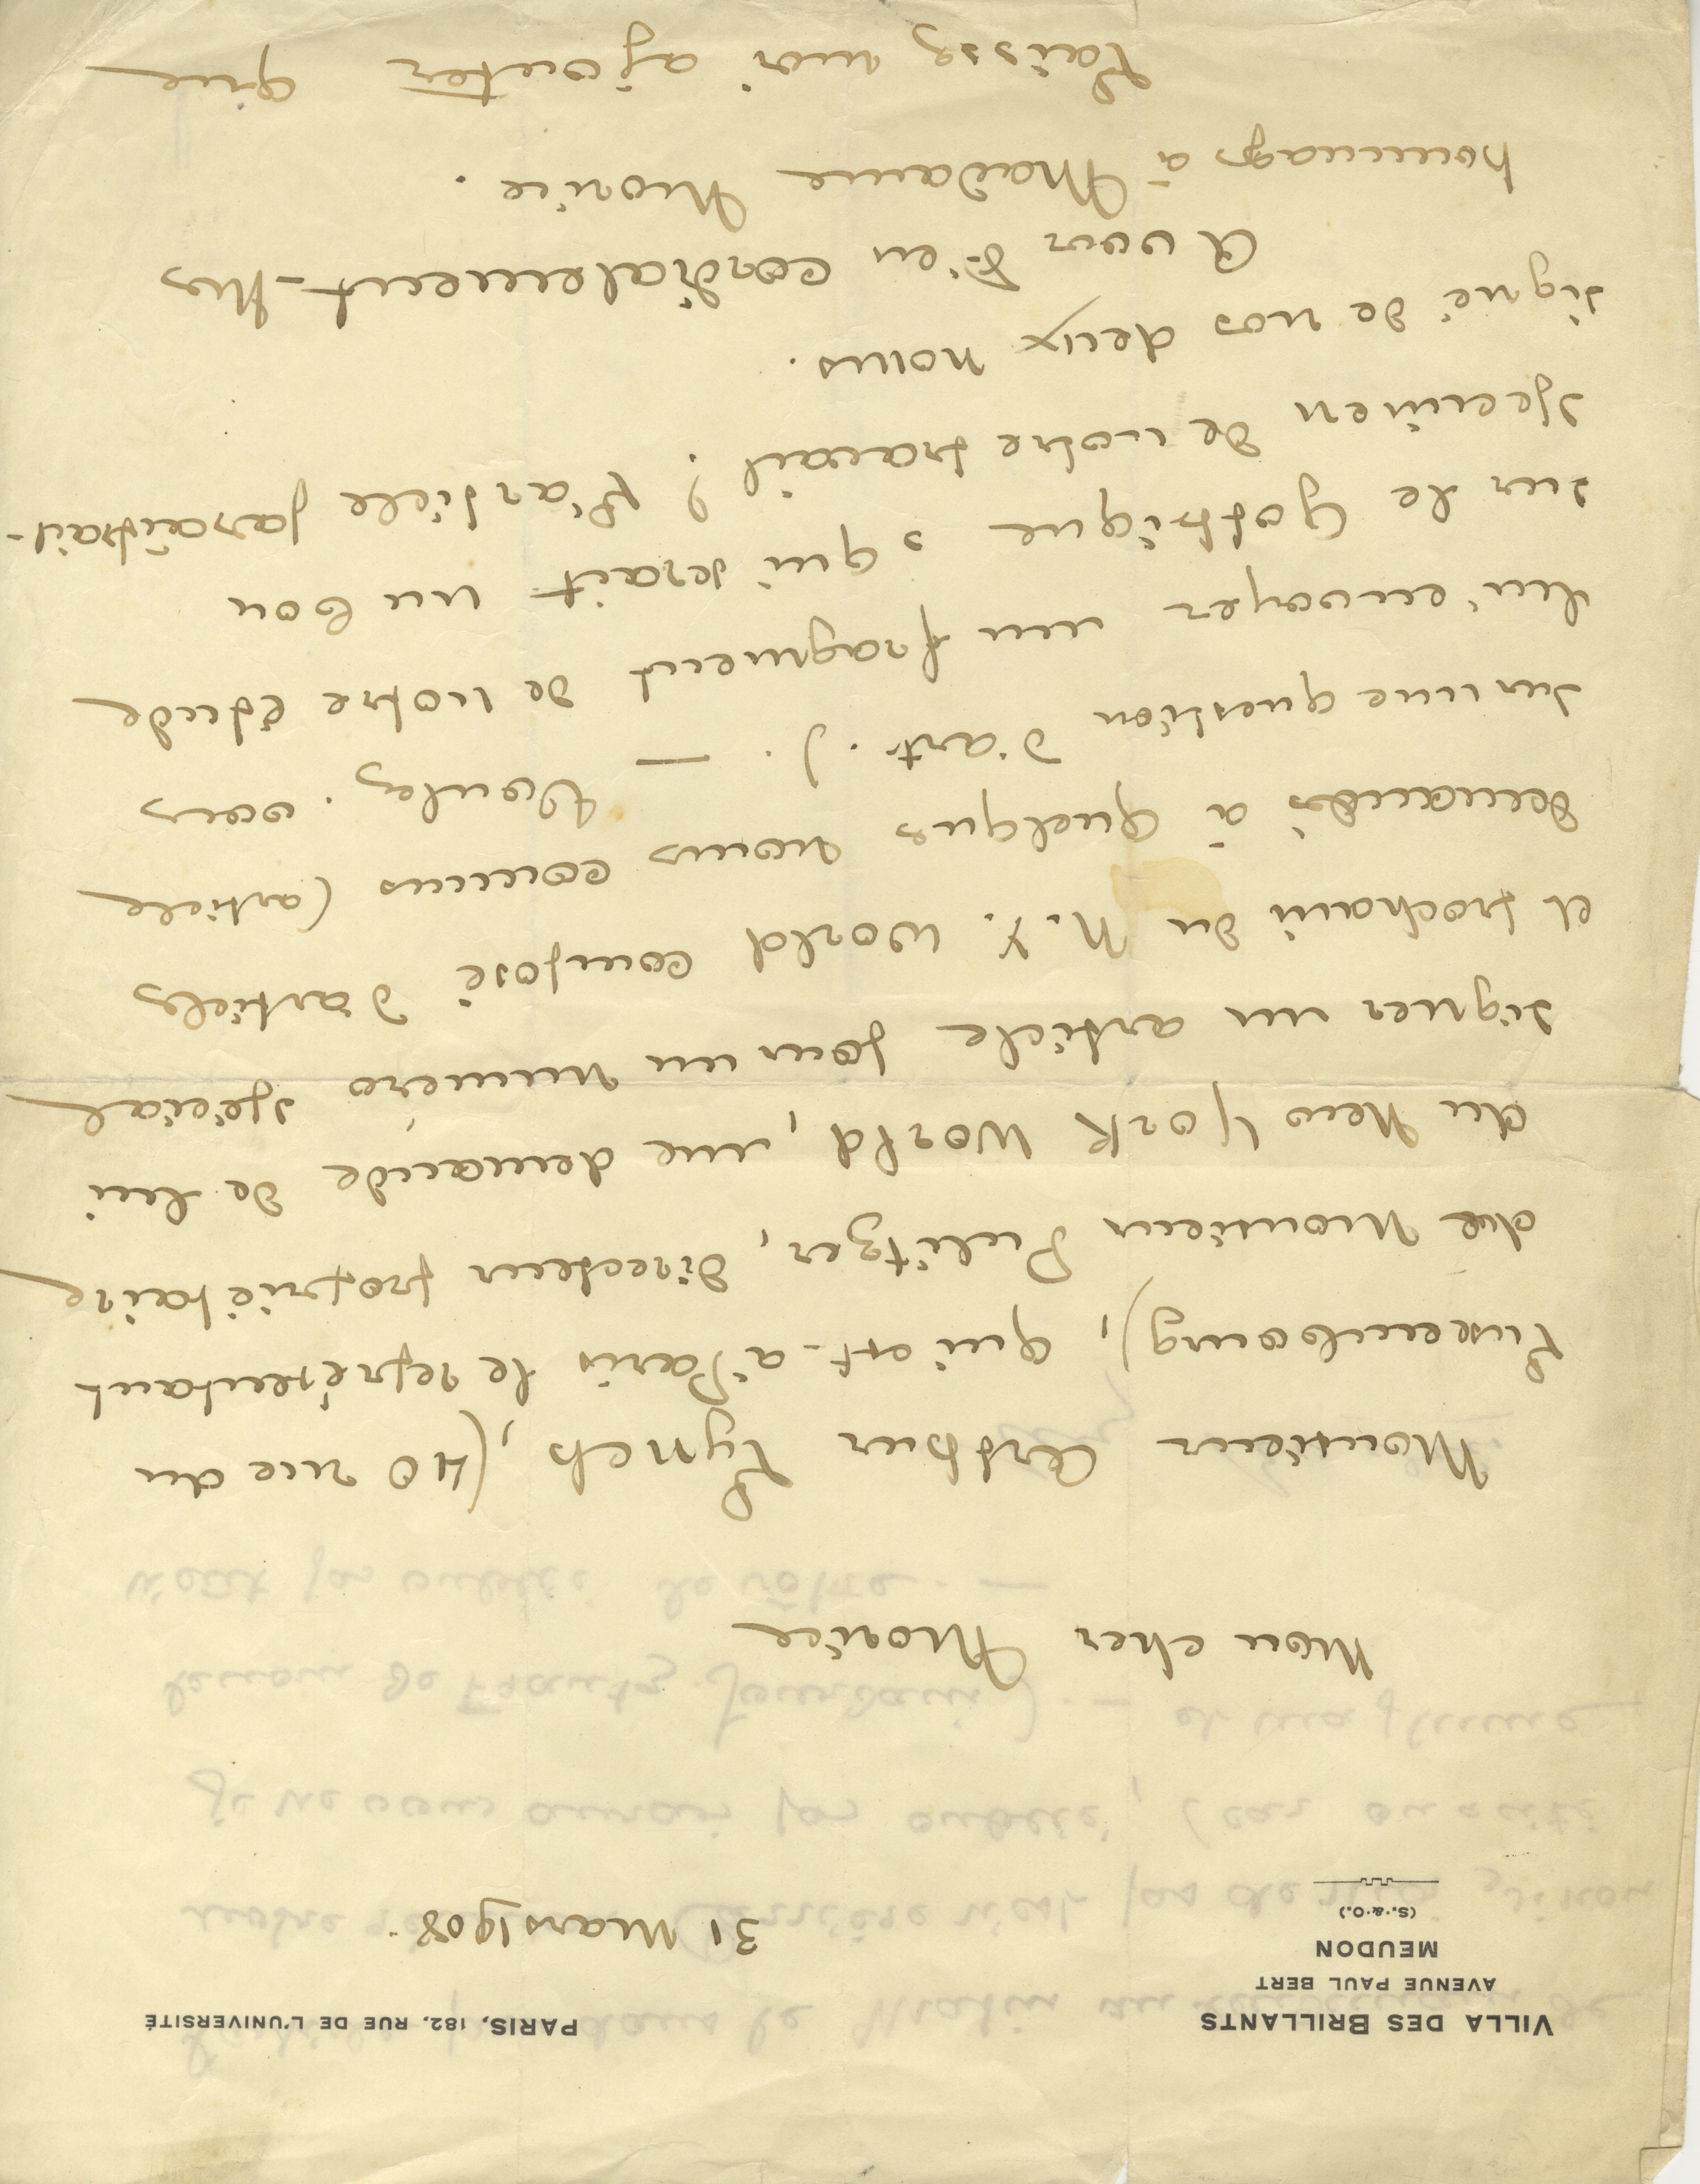 VILLA DES BRILLANTS
AVENUE PAUL BERT
MEUDON
(S.-&-O.)
PARIS, 182, RUE DE L'UNIVERSITÉ
31 Mars 1908.
Mon cher Morice
Monsieur Arthur Lynch, (40 rue du
Luxembourg), qui est à Paris le représentant
de Monsieur Pulitzer, directeur propriétaire
du New York World, me demande de lui
signer un article pour un numéro spécial
et prochain du N.Y. World composé d'articles
demandés à quelques noms connus (article
sur une question d'art.). — Voulez-vous
lui envoyer un fragment de notre Étude
sur le Gothique, qui serait un bon
specimen de notre travail? L'article paraîtrait
signé de nos deux noms.
A vous bien cordialement. Mes
hommages à Madame Morice.
Laissez moi ajouter que